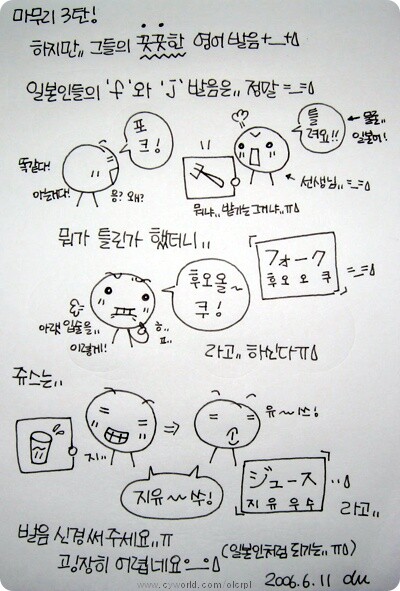 마무리 3탄!
하지만,, 그들의 꿋꿋한 영어 발음+_+
일본인들의 'f'와 'j' 발음은,, 정말 =_=
포
크!
틀
려요!!
← 물론,,
일본어!
똑같다!
아는게다!
응? 왜?
← 선생님,, =_=
뭐냐,, 발가는 그게냐,,ㅠ
뭐가 틀린가 했더니,,
フォーク
후 오 오 쿠
=_=
후오올~
쿠!
아랫 입술을,,
이렇게!
ㅎ..
ㅍ..
라고,, 하신다ㅠ
쥬스는,,
지..
유~~쓰!
지유~~쓰!
ジュース
지 유 우 수
라고,,
발음 신경써 주세요,,ㅠ
(일본인처럼 되가는,,ㅠ)
굉장히 어렵네요
2006.6.11 du
www.cyworld.com/olcrpl